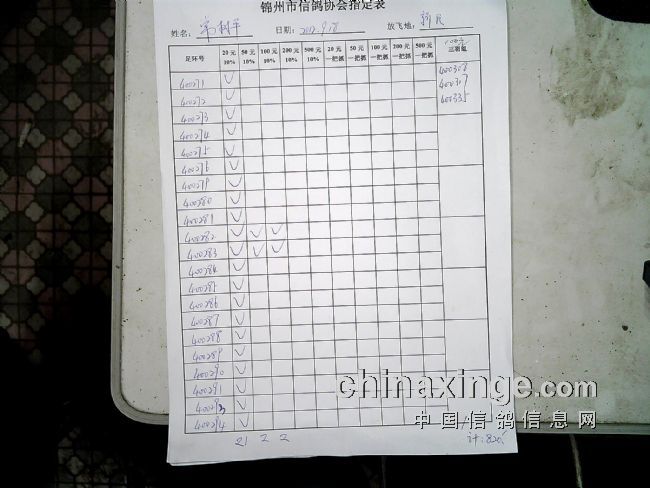 锦州市信鸽协会指定表
姓名： 日期：2012.9.18 放飞地：新民
足环号 20元10% 50元10% 100元10% 200元10% 500元10% 20元一把抓 50元一把抓 100元一把抓 200元一把抓 500元一把抓 100元三羽组
400271 ✓ 400308
400272 ✓ 400307
400273 ✓ 400335
400274 ✓
400275 ✓
400276 ✓
400279 ✓
400280 ✓
400281 ✓
400282 ✓ ✓ ✓
400283 ✓ ✓ ✓
400284 ✓
400285 ✓
400286 ✓
400287 ✓
400288 ✓
400289 ✓
400290 ✓
400291 ✓
✓
400294 ✓
21 2 2 计:820
chinaxinge.com
中国信鸽信息网